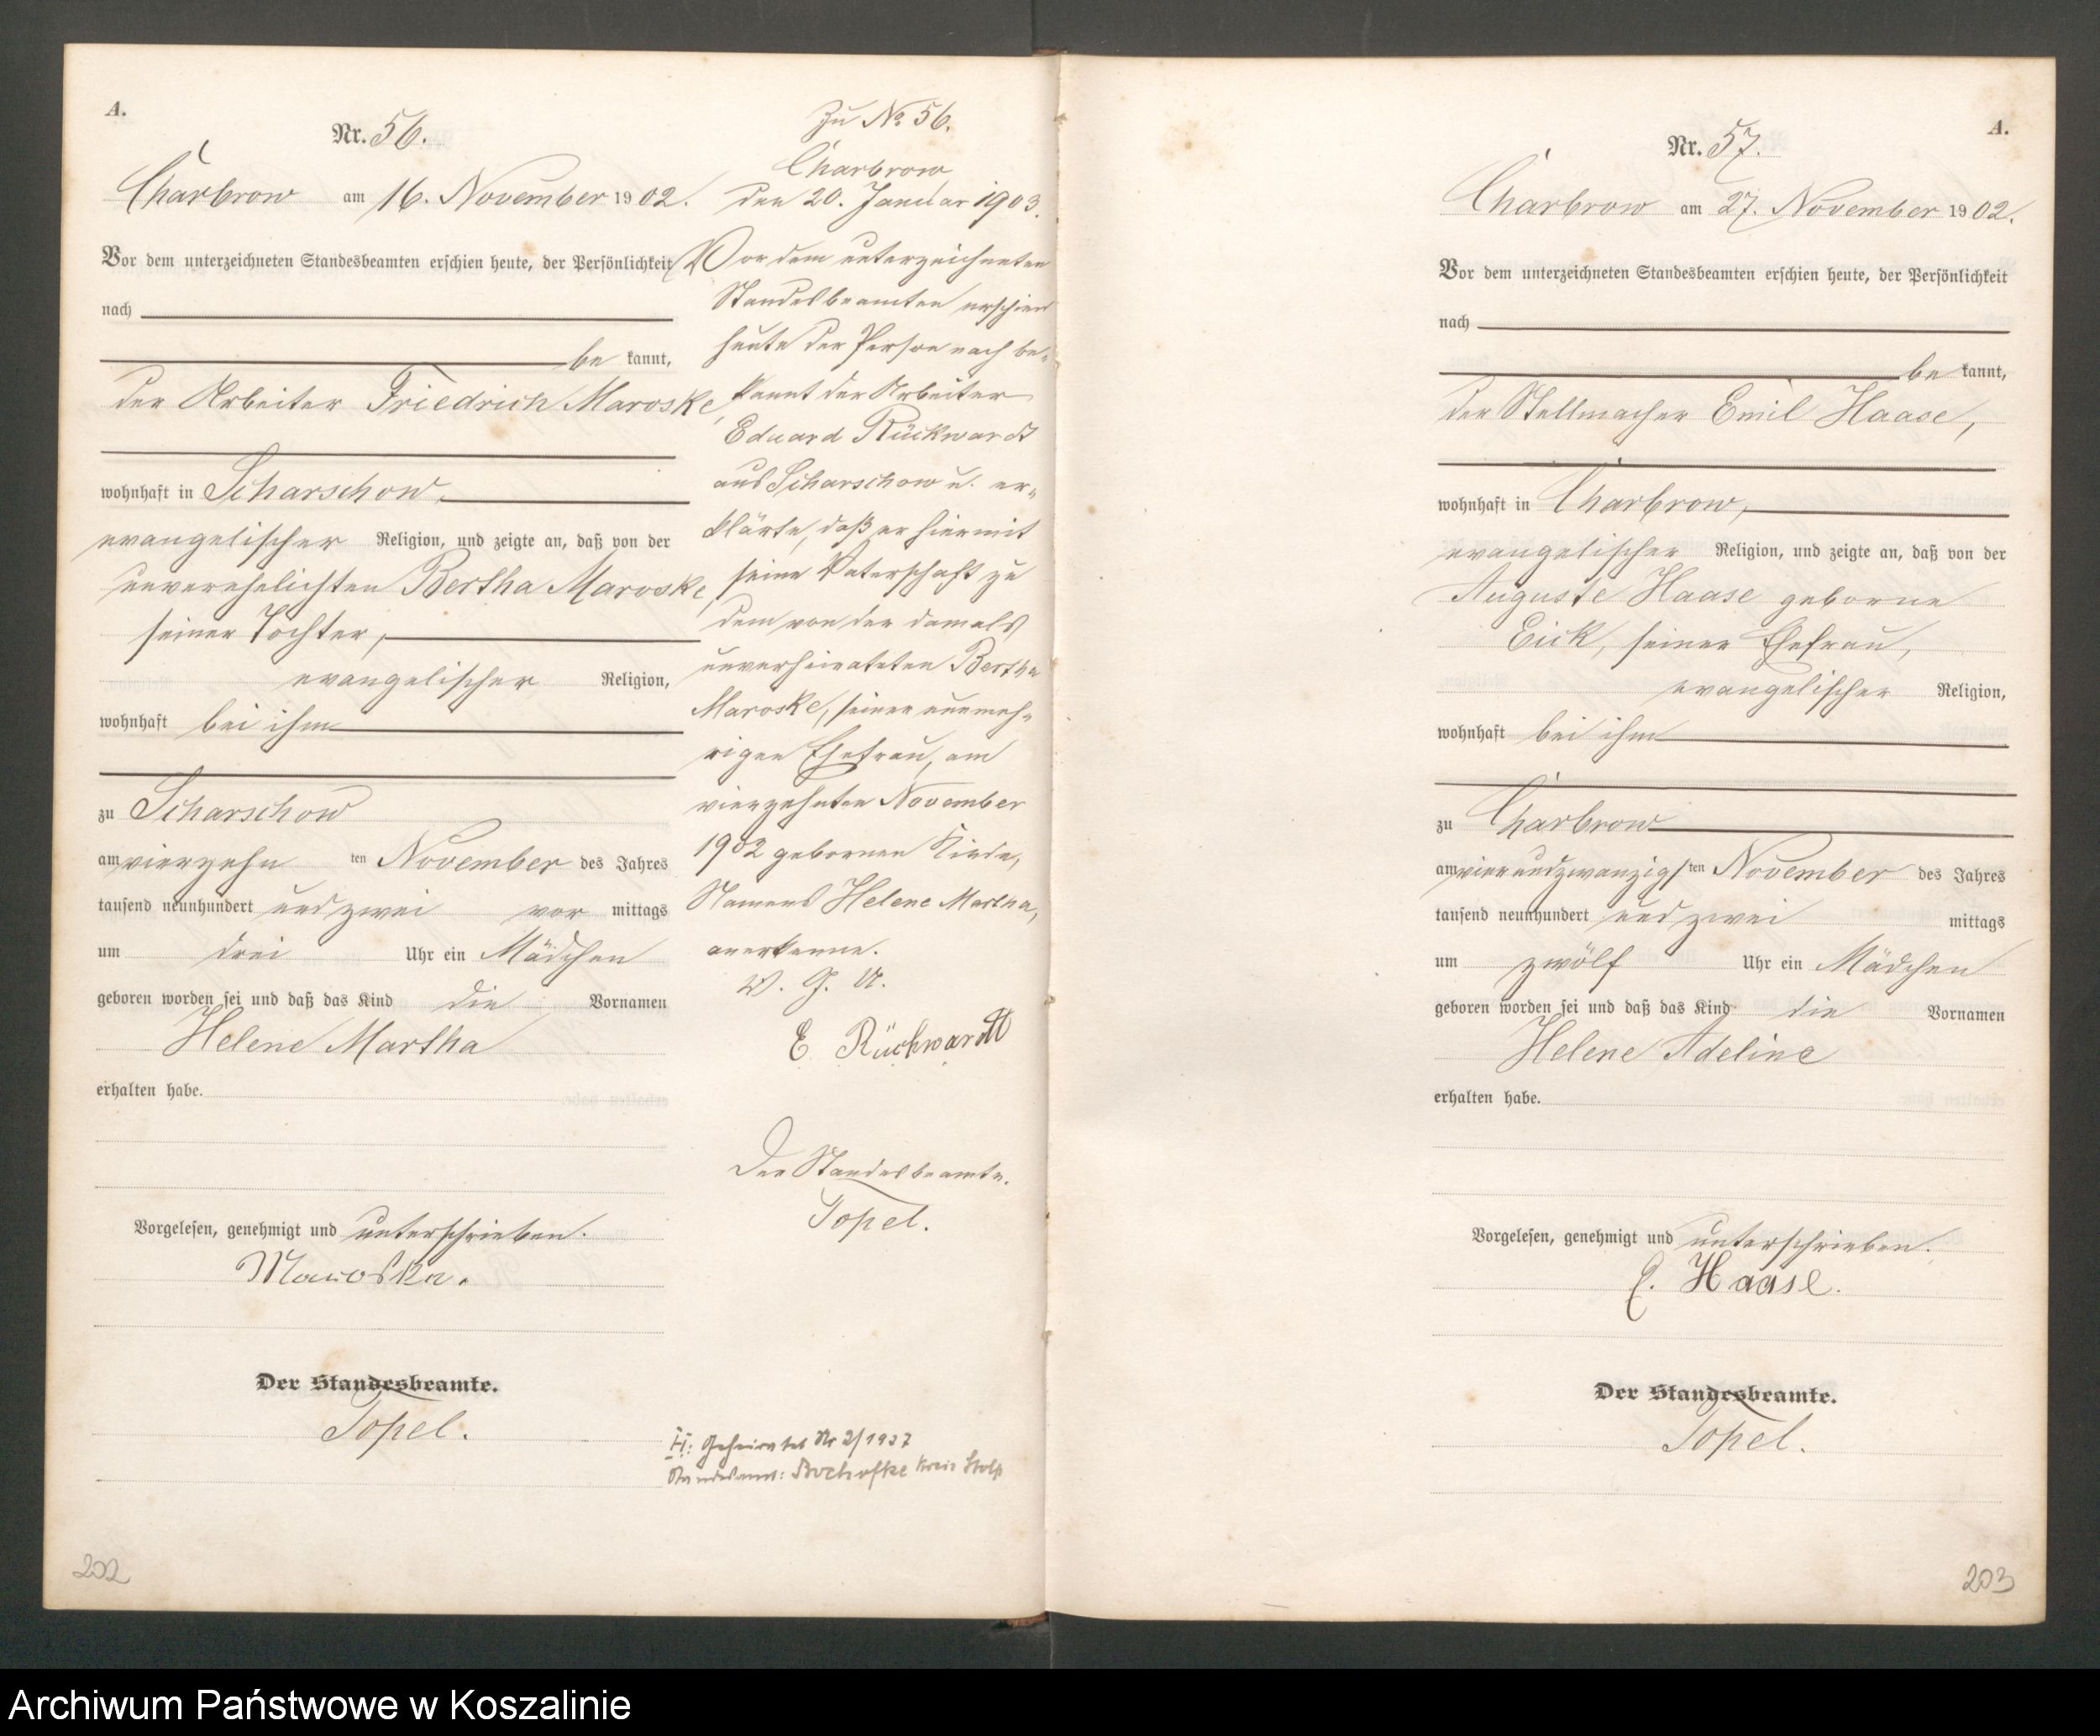 A.
Nr. 56.
Charbrow am 16. November 1902.
Vor dem unterzeichneten Standesbeamten erschien heute, der Persönlichkeit
nach
be kannt,
der Arbeiter Friedrich Maroske,
wohnhaft in Scharschow,
evangelischer Religion, und zeigte an, daß von der
unverehelichten Bertha Maroske,
seiner Tochter,
evangelischer Religion,
wohnhaft bei ihm
zu Scharschow
am vierzehn ten November des Jahres
tausend neunhundert und zwei vor mittags
um drei Uhr ein Mädchen
geboren worden sei und daß das Kind die Vornamen
Helene Martha
erhalten habe.
Vorgelesen, genehmigt und unterschrieben.
Maroske.
Der Standesbeamte.
Topel.
202
Zu No 56.
Charbrow,
den 20. Januar 1903.
Vor dem unterzeichneten
Standesbeamten erschien
heute der Person nach be-
kannt der Arbeiter
Eduard Rückwardt
aus Scharschow u. er-
klärte, daß er hiermit
seine Vaterschaft zu
dem von der damals
unverheirateten Bertha
Maroske, seiner nunmeh-
rigen Ehefrau, am
vierzehnten November
1902 geborenen Kinde,
Namens Helene Martha,
anerkenne.
V. G. U.
E. Rückwardt
Der Standesbeamte.
Topel.
H: Geheiratet Nr 2/1937
Standesamt: Kreis Stolp
A.
Nr. 57.
Charbrow am 27. November 1902.
Vor dem unterzeichneten Standesbeamten erschien heute, der Persönlichkeit
nach
be kannt,
der Stellmacher Emil Haase,
wohnhaft in Charbrow,
evangelischer Religion, und zeigte an, daß von der
Auguste Haase geborne
Eick, seiner Ehefrau,
evangelischer Religion,
wohnhaft bei ihm
zu Charbrow
am vierundzwanzigsten November des Jahres
tausend neunhundert und zwei mittags
um zwölf Uhr ein Mädchen
geboren worden sei und daß das Kind die Vornamen
Helene Adeline
erhalten habe.
Vorgelesen, genehmigt und unterschrieben.
E. Haase.
Der Standesbeamte.
Topel.
203
Archiwum Państwowe w Koszalinie